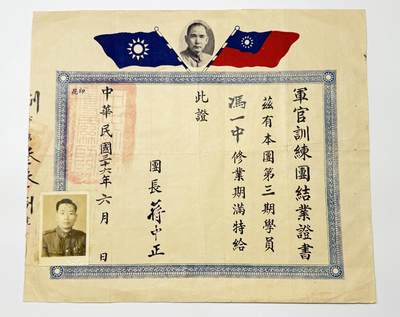 軍官訓練團結業證書
茲有本團第三期學員
馮一中修業期滿特給
此證
團長 蔣中正
中華民國三十六年六月 日